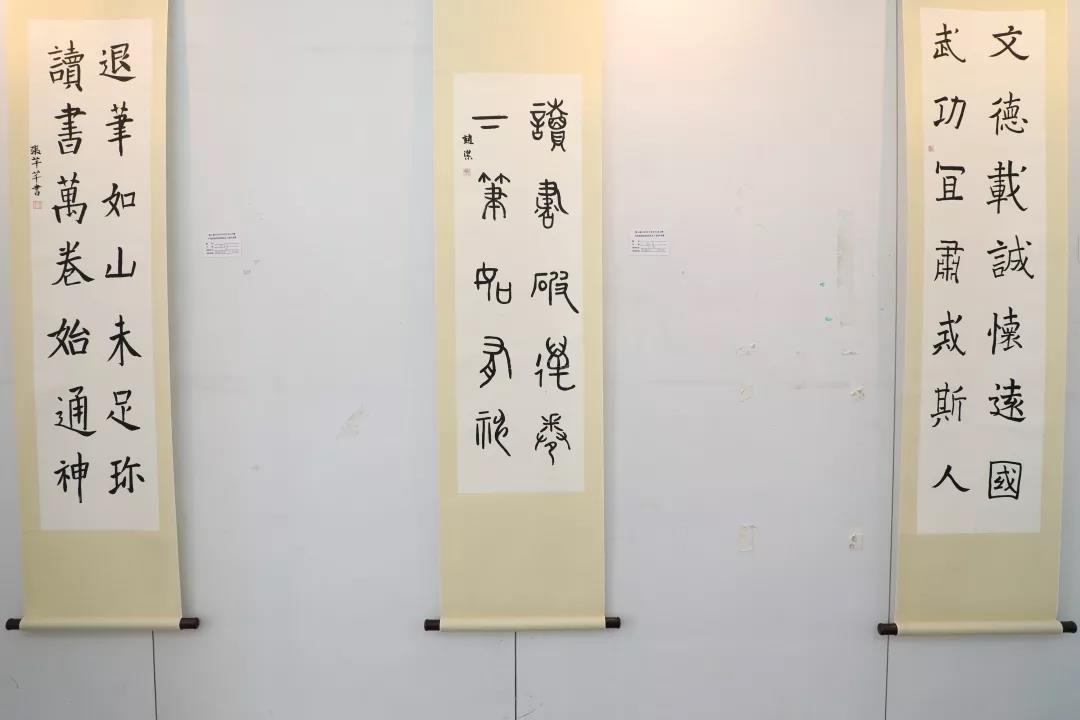 文德載誠懷遠國
武功宜肅戎斯人
讀書破萬卷
下筆如有神
退筆如山未足珍
讀書萬卷始通神
張芊芊書